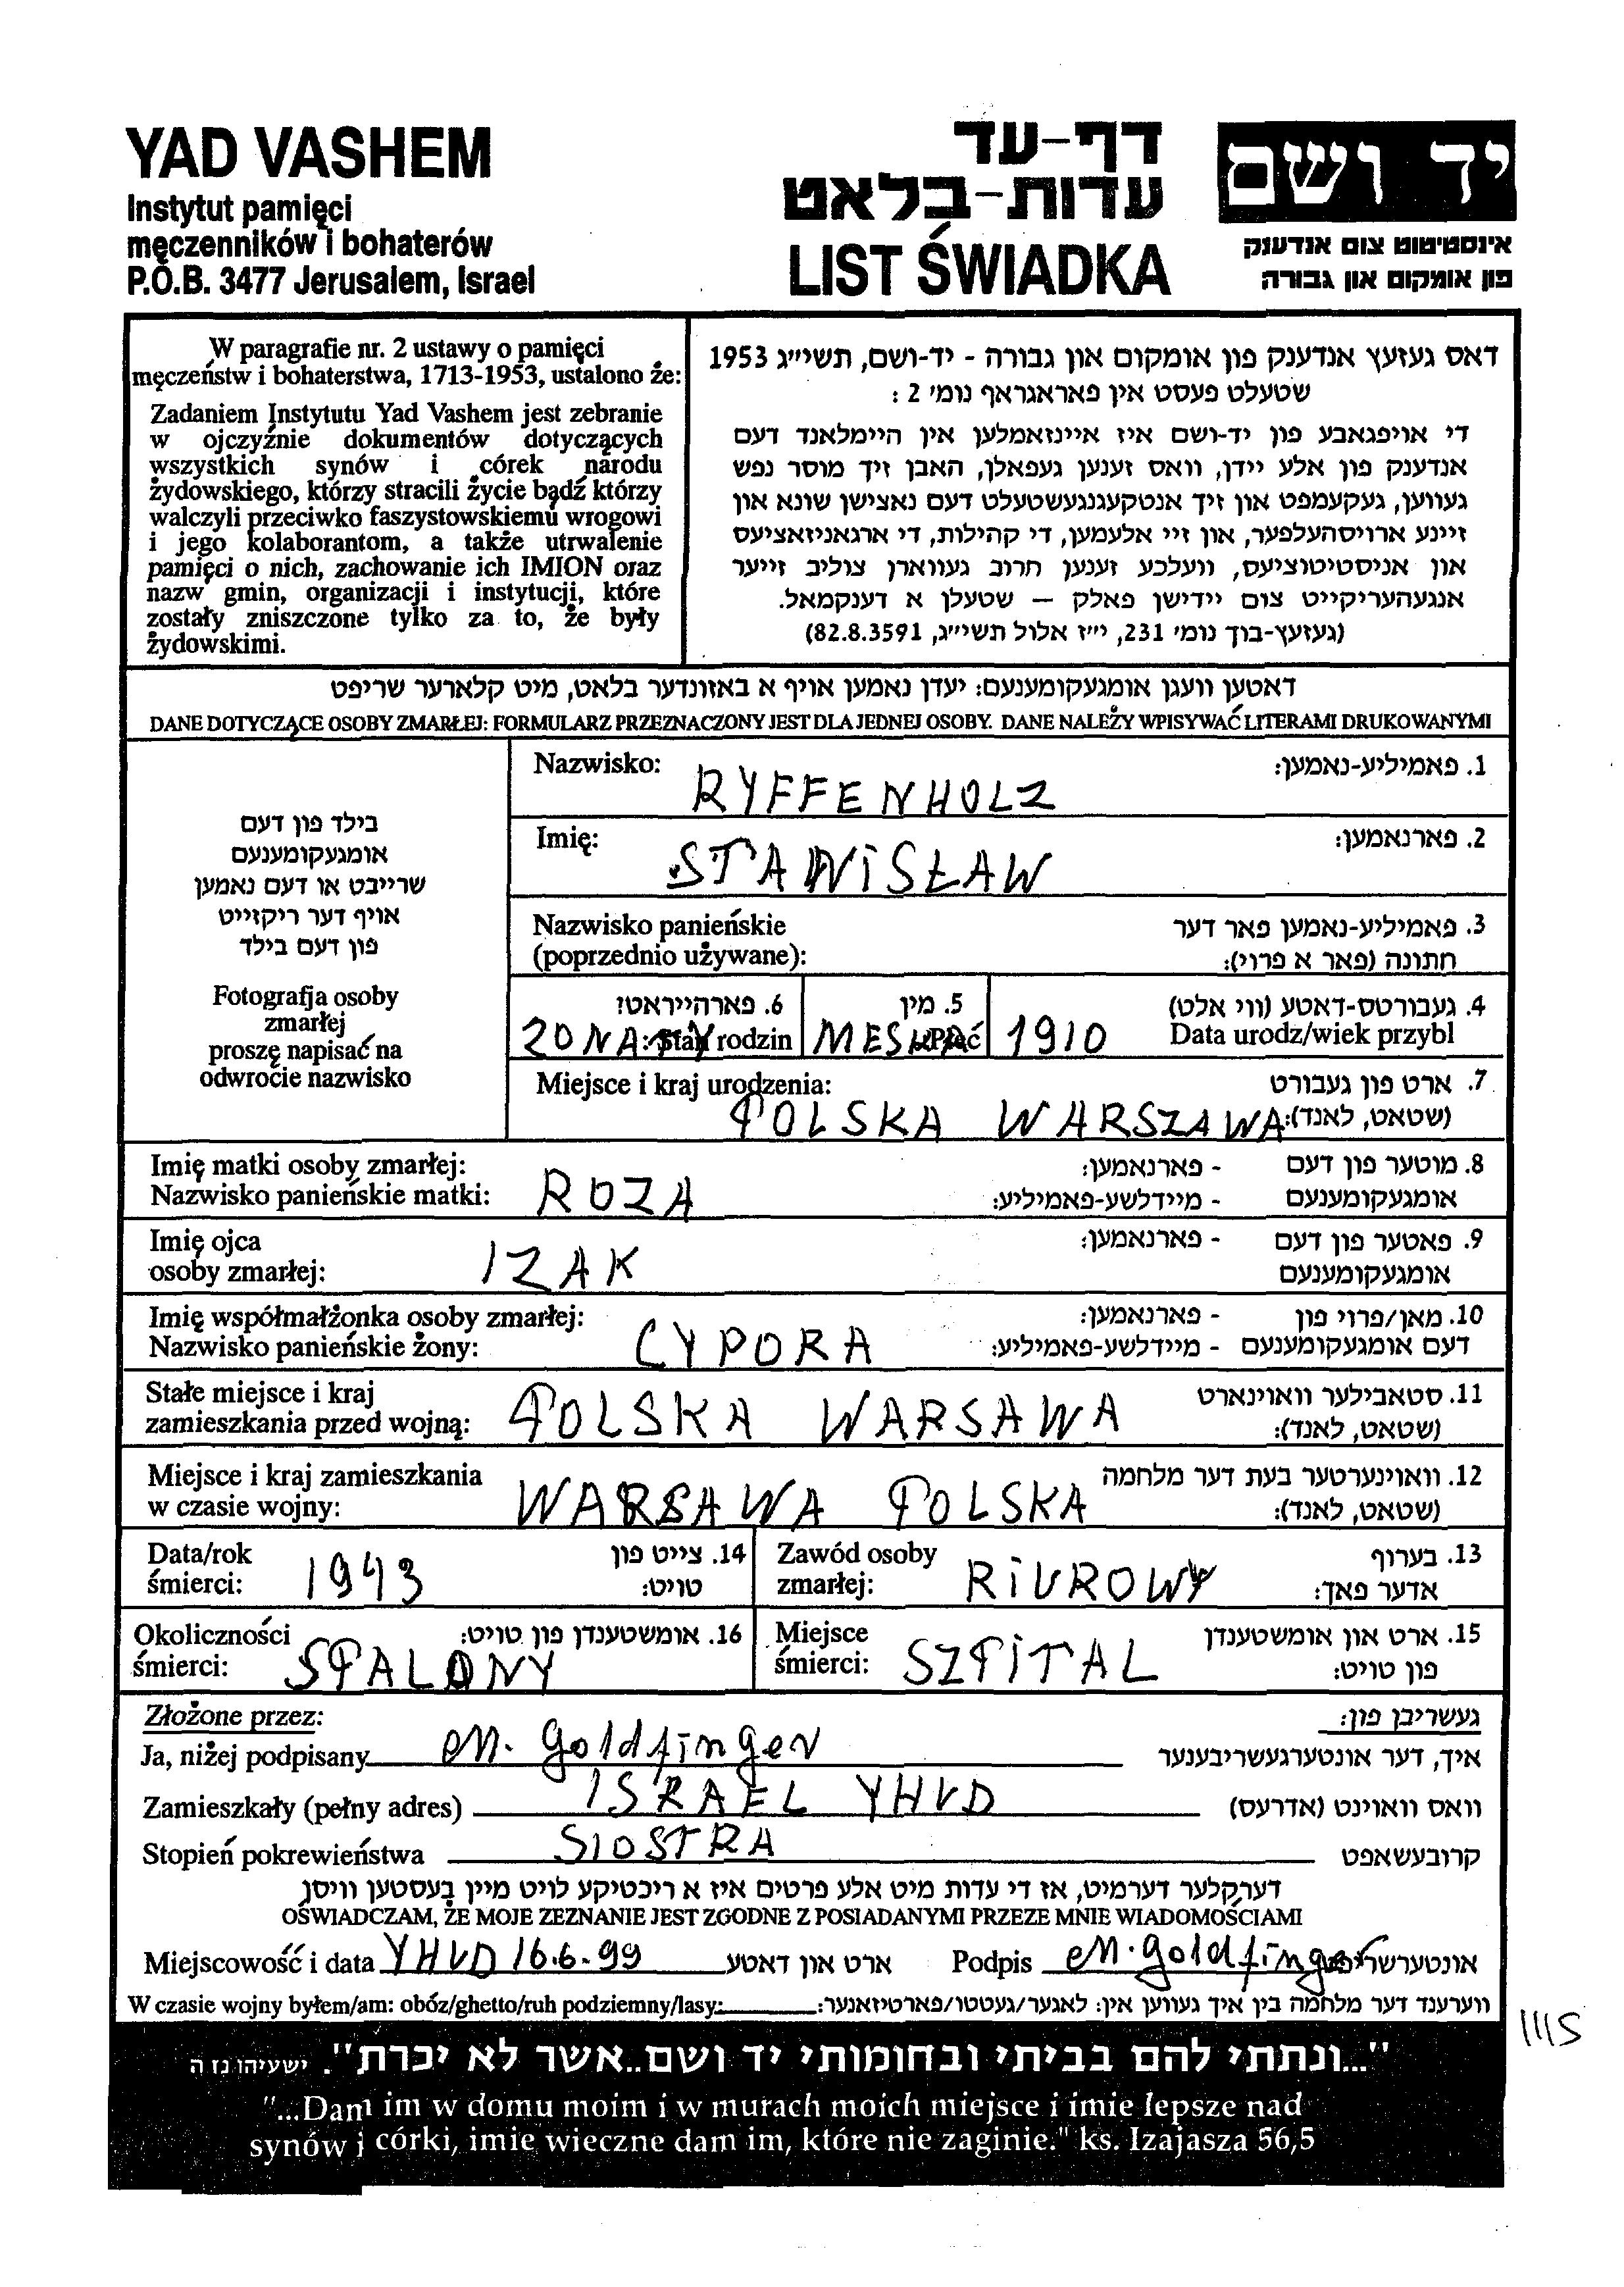 YAD VASHEM
Instytut pamięci
męczenników i bohaterów
P.O.B. 3477 Jerusalem, Israel
דף-עד
עדות-בלאט
LIST ŚWIADKA
יד ושם
אינסטיטוט צום אנדענק
פון אומקום און גבורה
W paragrafie nr. 2 ustawy o pamięci
męczeństw i bohaterstwa, 1713-1953, ustalono że:
Zadaniem Instytutu Yad Vashem jest zebranie
w ojczyźnie dokumentów dotyczących
wszystkich synów i córek narodu
żydowskiego, którzy stracili życie bądź którzy
walczyli przeciwko faszystowskiemu wrogowi
i jego kolaborantom, a także utrwalenie
pamięci o nich, zachowanie ich IMION oraz
nazw gmin, organizacji i instytucji, które
zostały zniszczone tylko za to, że były
żydowskimi.
דאס געזעץ אנדענק פון אומקום און גבורה - יד-ושם, תשי״ג 1953
שטעלט פעסט אין פאראגראף נומ׳ 2 :
די אויפגאבע פון יד-ושם איז איינזאמלען אין היימלאנד דעם
אנדענק פון אלע יידן, וואס זענען געפאלן, האבן זיך מוסר נפש
געווען, געקעמפט און זיך אנטקעגנגעשטעלט דעם נאצישן שונא און
זיינע ארויסהעלפער, און זיי אלעמען, די קהילות, די ארגאניזאציעס
און אניסטיטוציעס, וועלכע זענען חרוב געווארן צוליב זייער
אנגעהעריקייט צום יידישן פאלק – שטעלן א דענקמאל.
(געזעץ-בוך נומ׳ 231, י״ז אלול תשי״ג, 82.8.3591)
דאטען וועגן אומגעקומענעם: יעדן נאמען אויף א באזונדער בלאט, מיט קלארער שריפט
DANE DOTYCZĄCE OSOBY ZMARŁEJ: FORMULARZ PRZEZNACZONY JEST DLA JEDNEJ OSOBY. DANE NALEŻY WPISYWAĆ LITERAMI DRUKOWANYMI
בילד פון דעם
אומגעקומענעם
שרייבט או דעם נאמען
אויף דער ריקזייט
פון דעם בילד
Fotografja osoby
zmarłej
proszę napisać na
odwrocie nazwisko
Nazwisko: RYFFENHOLZ 1. פאמיליע-נאמען:
Imię: STANISŁAW 2. פארנאמען:
Nazwisko panieńskie 3. פאמיליע-נאמען פאר דער
(poprzednio używane): חתונה (פאר א פרוי):
6. פארהייראט? 5. מין 4. געבורטס-דאטע (ווי אלט)
ZONATY :Stan rodzin MESKA Płeć 1910 Data urodz/wiek przybl
Miejsce i kraj urodzenia: 7. ארט פון געבורט
POLSKA WARSZAWA (שטאט, לאנד):
Imię matki osoby zmarłej: - פארנאמען: 8. מוטער פון דעם
Nazwisko panieńskie matki: ROZA - מיידלשע-פאמיליע: אומגעקומענעם
Imię ojca - פארנאמען: 9. פאטער פון דעם
osoby zmarłej: IZAK אומגעקומענעם
Imię współmałżonka osoby zmarłej: - פארנאמען: 10. מאן/פרוי פון
Nazwisko panieńskie żony: CYPORA - מיידלשע-פאמיליע: דעם אומגעקומענעם
Stałe miejsce i kraj 11. סטאבילער וואוינארט
zamieszkania przed wojną: POLSKA WARSAWA (שטאט, לאנד):
Miejsce i kraj zamieszkania 12. וואוינערטער בעת דער מלחמה
w czasie wojny: WARSAWA POLSKA (שטאט, לאנד):
Data/rok 14. צייט פון Zawód osoby 13. בערוף
śmierci: 1943 טויט: zmarłej: RIUROWY אדער פאך:
Okoliczności 16. אומשטענדן פון טויט: Miejsce 15. ארט און אומשטענדן
śmierci: SPALONY śmierci: SZPITAL פון טויט:
Złożone przez: געשריבן פון:
Ja, niżej podpisany M. Goldfinger איך, דער אונטערגעשריבענער
Zamieszkały (pełny adres) ISRAEL YHUD וואס וואוינט (אדרעס)
Stopień pokrewieństwa SIOSTRA קרובעשאפט
דערקלער דערמיט, אז די עדות מיט אלע פרטים איז א ריכטיקע לויט מיין בעסטען וויסן
OŚWIADCZAM, ŻE MOJE ZEZNANIE JEST ZGODNE Z POSIADANYMI PRZEZE MNIE WIADOMOŚCIAMI
Miejscowość i data YHUD 16.6.99 ארט און דאטע Podpis M. Goldfinger
W czasie wojny byłem/am: obóz/ghetto/ruh podziemny/lasy: ווערענד דער מלחמה בין איך געווען אין: לאגער/געטטו/פארטיזאנער:
"...ונתתי להם בביתי ובחומותי יד ושם..אשר לא יכרת". ישעיהו נז ה
"...Dam im w domu moim i w murach moich miejsce i imie lepsze nad
synów i córki, imie wieczne dam im, które nie zaginie." ks. Izajasza 56,5